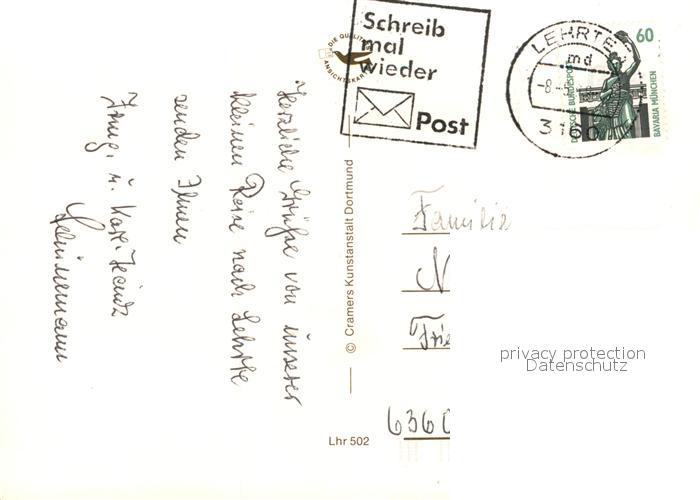 Herzliche Grüße von unserer
kleinen Reise nach Lehrte
senden Ihnen
Irmg. u. Karl-Heinz
DIE QUALITÄTS
ANSICHTSKARTE
© Cramers Kunstanstalt Dortmund
Lhr 502
Schreib
mal
wieder
Post
LEHRTE
md
-8.-
3160
60
DEUTSCHE BUNDESPOST
BAVARIA MÜNCHEN
Familie
N
Frie
6360
privacy protection
Datenschutz